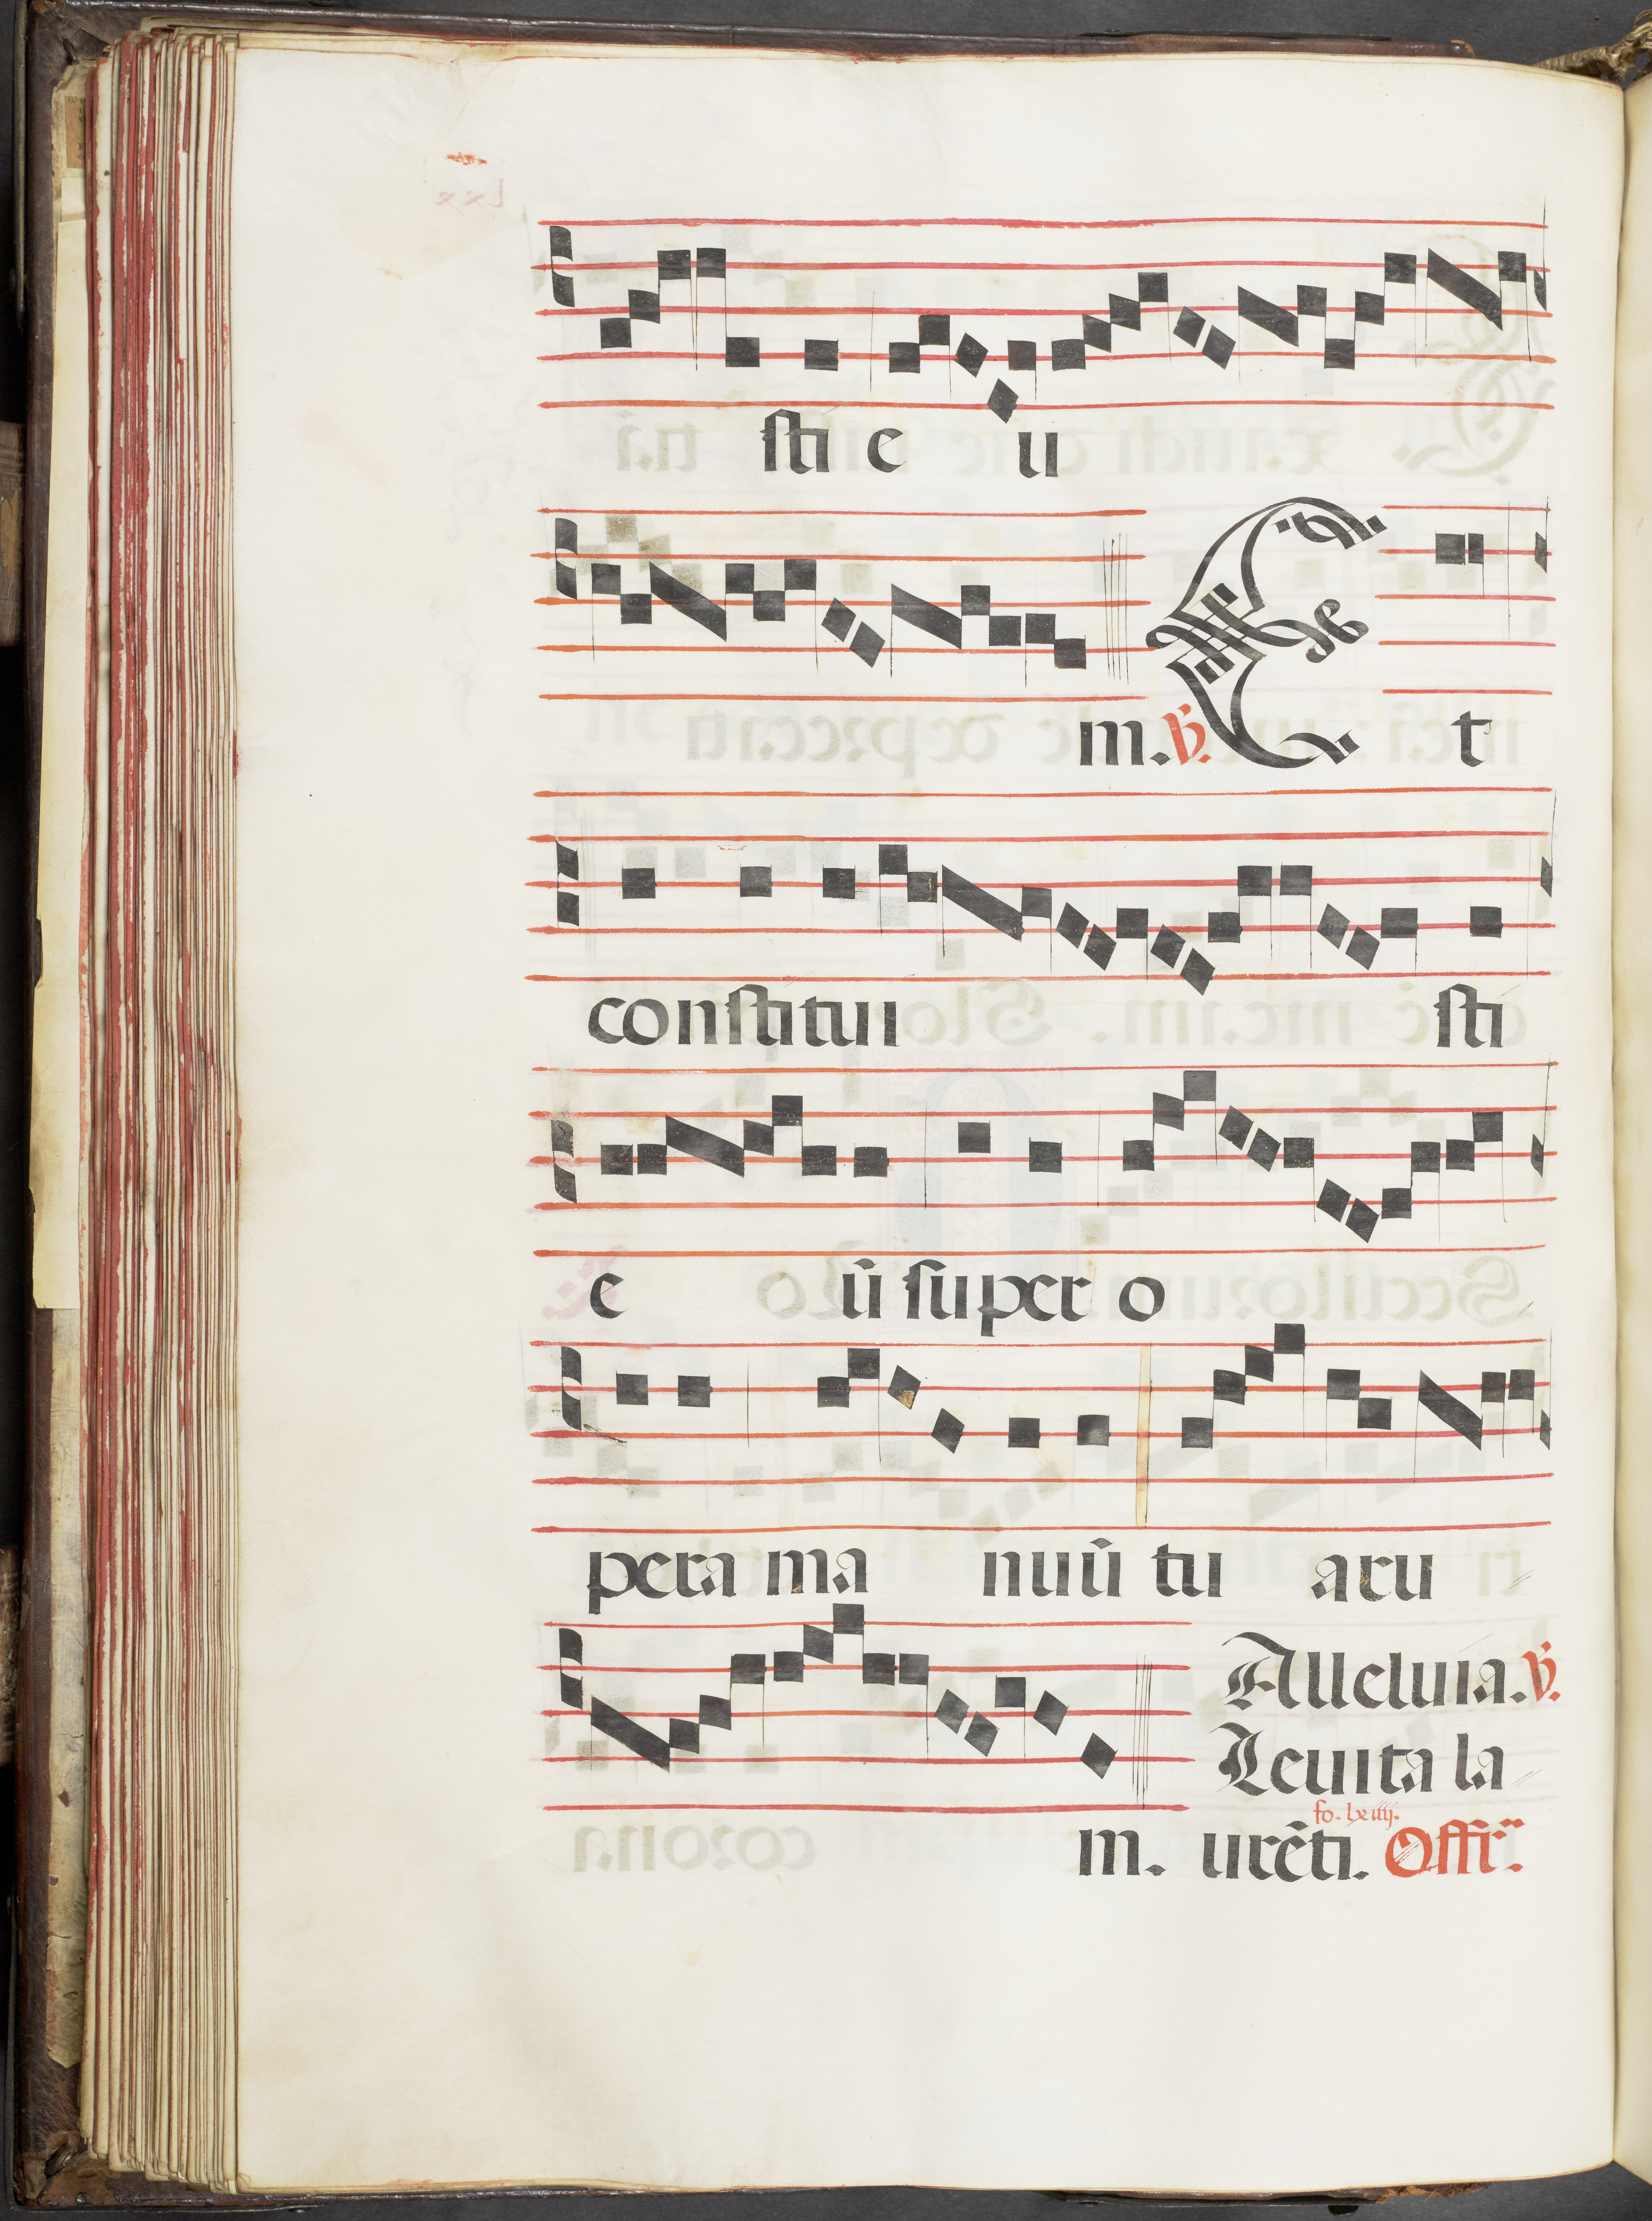 sti e u
m. ℣. Et
constitui sti
e ū super o
pera ma nuū tu aru
Alleluia. ℣.
Leuita la
fo. lxiiij.
m. urēti. Offr̃.